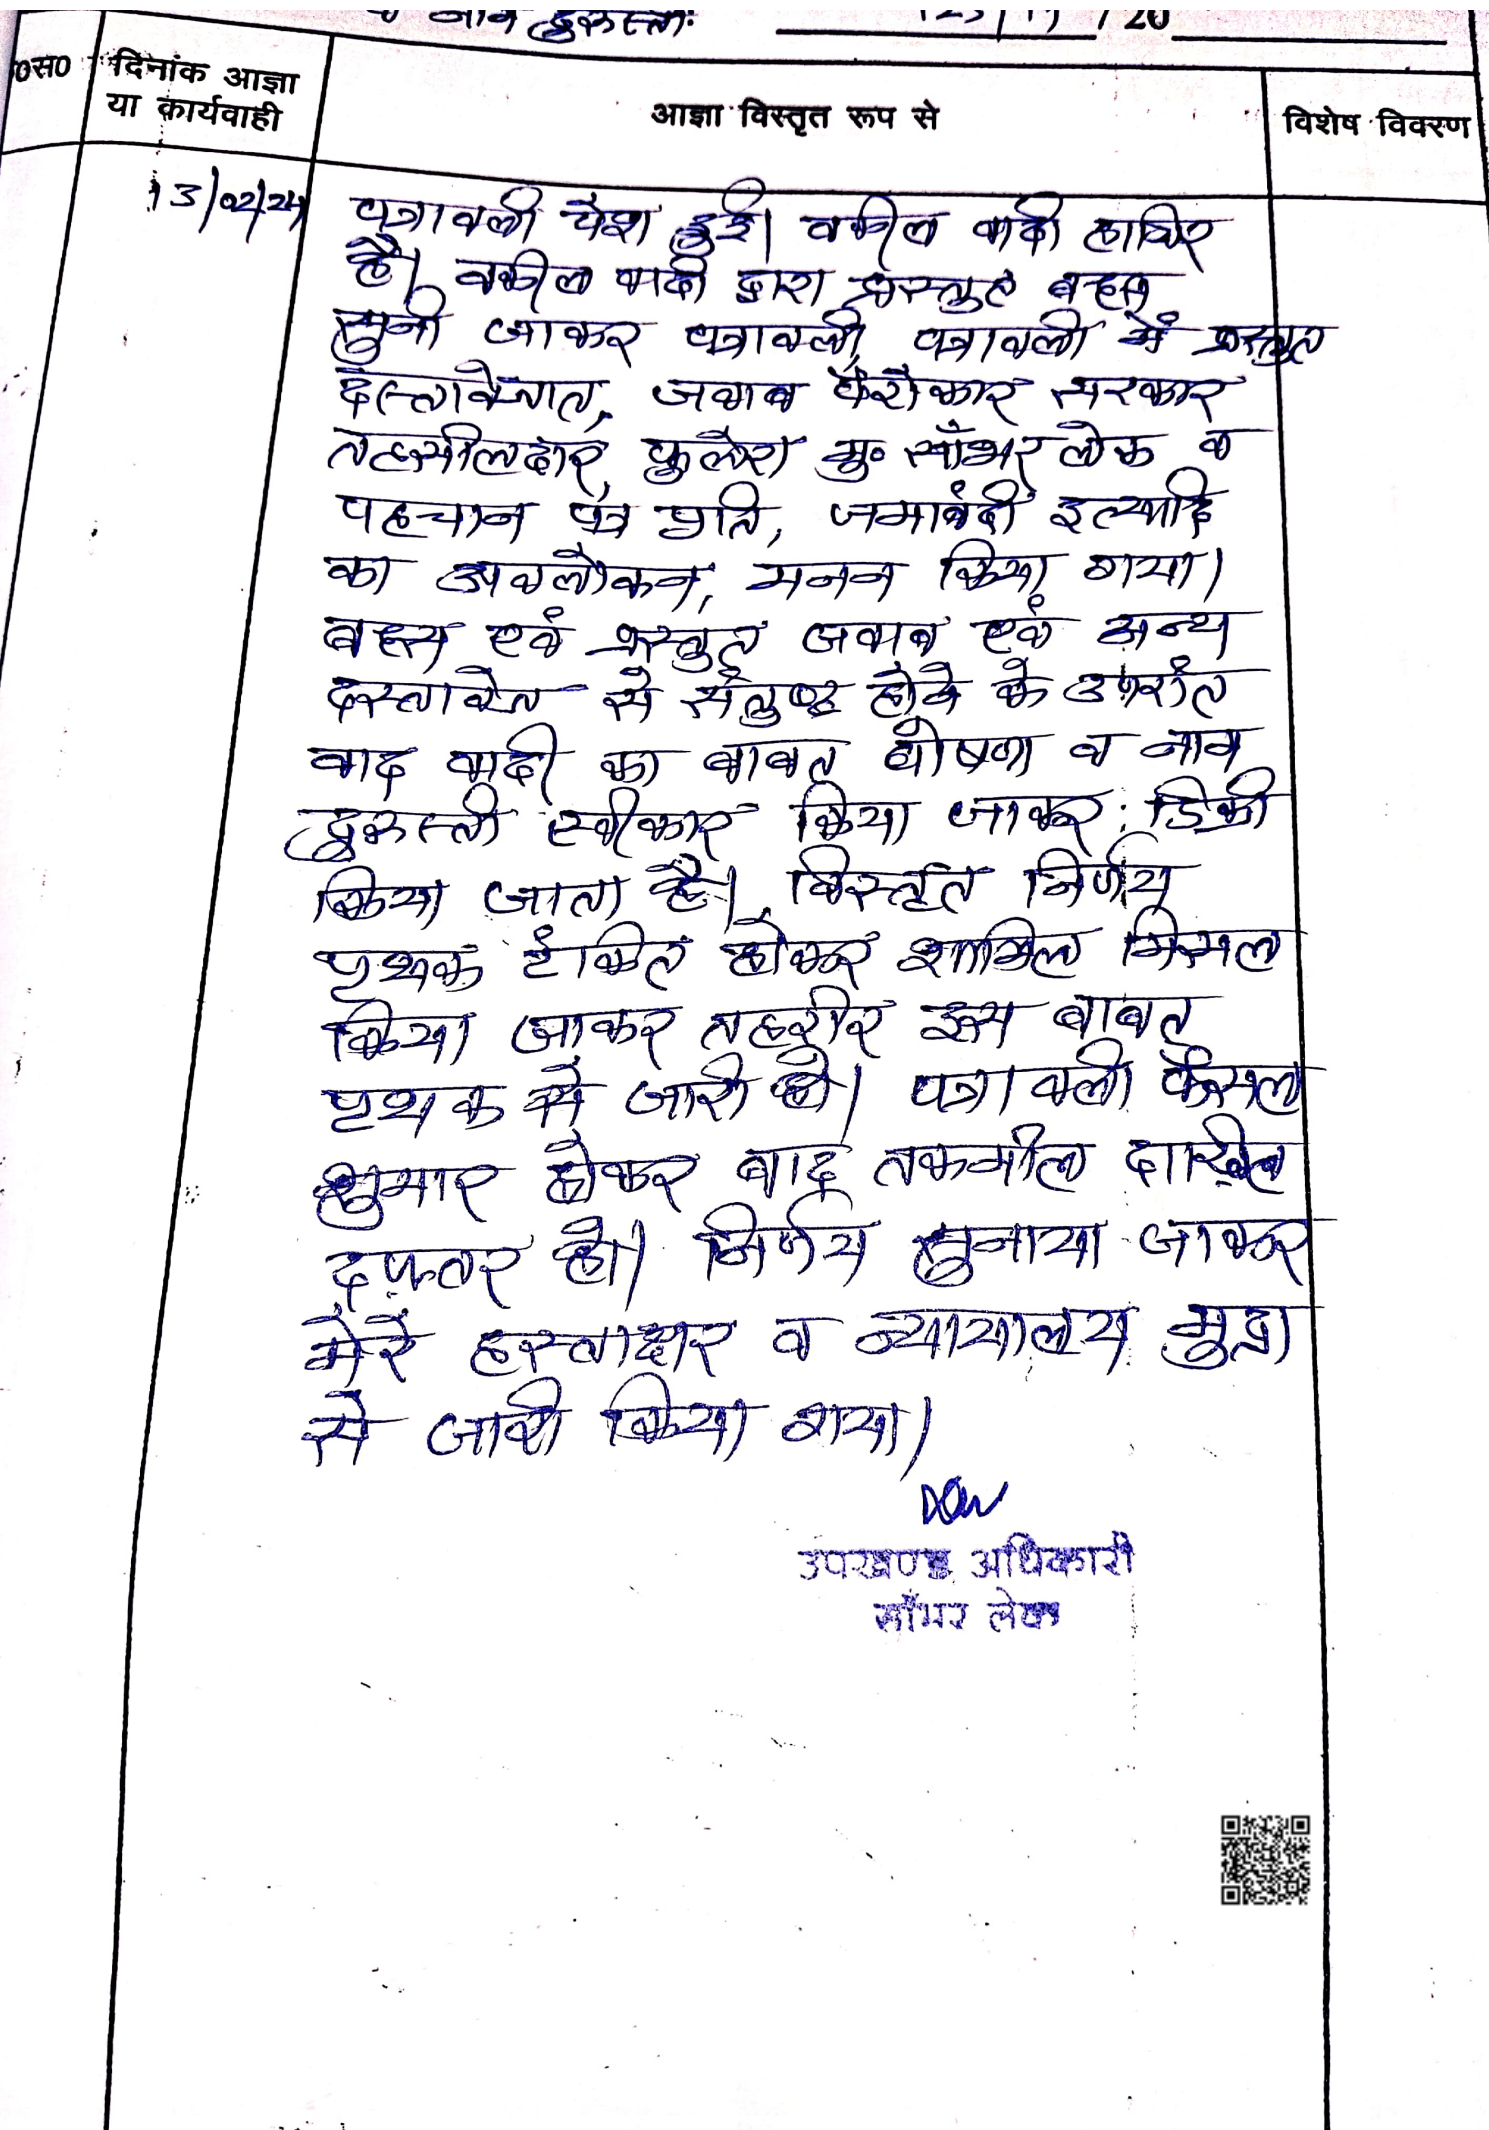 व नाम दुरुस्ती
/20
०स० दिनांक आज्ञा या कार्यवाही आज्ञा विस्तृत रूप से विशेष विवरण
13/02/24 पत्रावली पेश हुई। वकील वादी हाजिर
है। वकील वादी द्वारा प्रस्तुत बहस
सुनी जाकर पत्रावली, पत्रावली में प्रस्तुत
दस्तावेजात, जवाब पैरोकार सरकार
तहसीलदार, फुलेरा मु० साँभर लेक व
पहचान पत्र प्रति, जमाबंदी इत्यादि
का अवलोकन, मनन किया गया।
बहस एवं प्रस्तुत जवाब एवं अन्य
दस्तावेज से संतुष्ट होने के उपरांत
वाद वादी का बाबत घोषणा व नाम
दुरुस्ती स्वीकार किया जाकर डिक्री
किया जाता है। विस्तृत निर्णय
पृथक टंकित होकर शामिल मिसल
किया जाकर तहरीर इस बाबत
पृथक से जारी हो। पत्रावली फैसल
शुमार होकर बाद तकमील दाखिल
दफ्तर हो। निर्णय सुनाया जाकर
मेरे हस्ताक्षर व न्यायालय मुद्रा
से जारी किया गया।
उपखण्ड अधिकारी
साँभर लेक